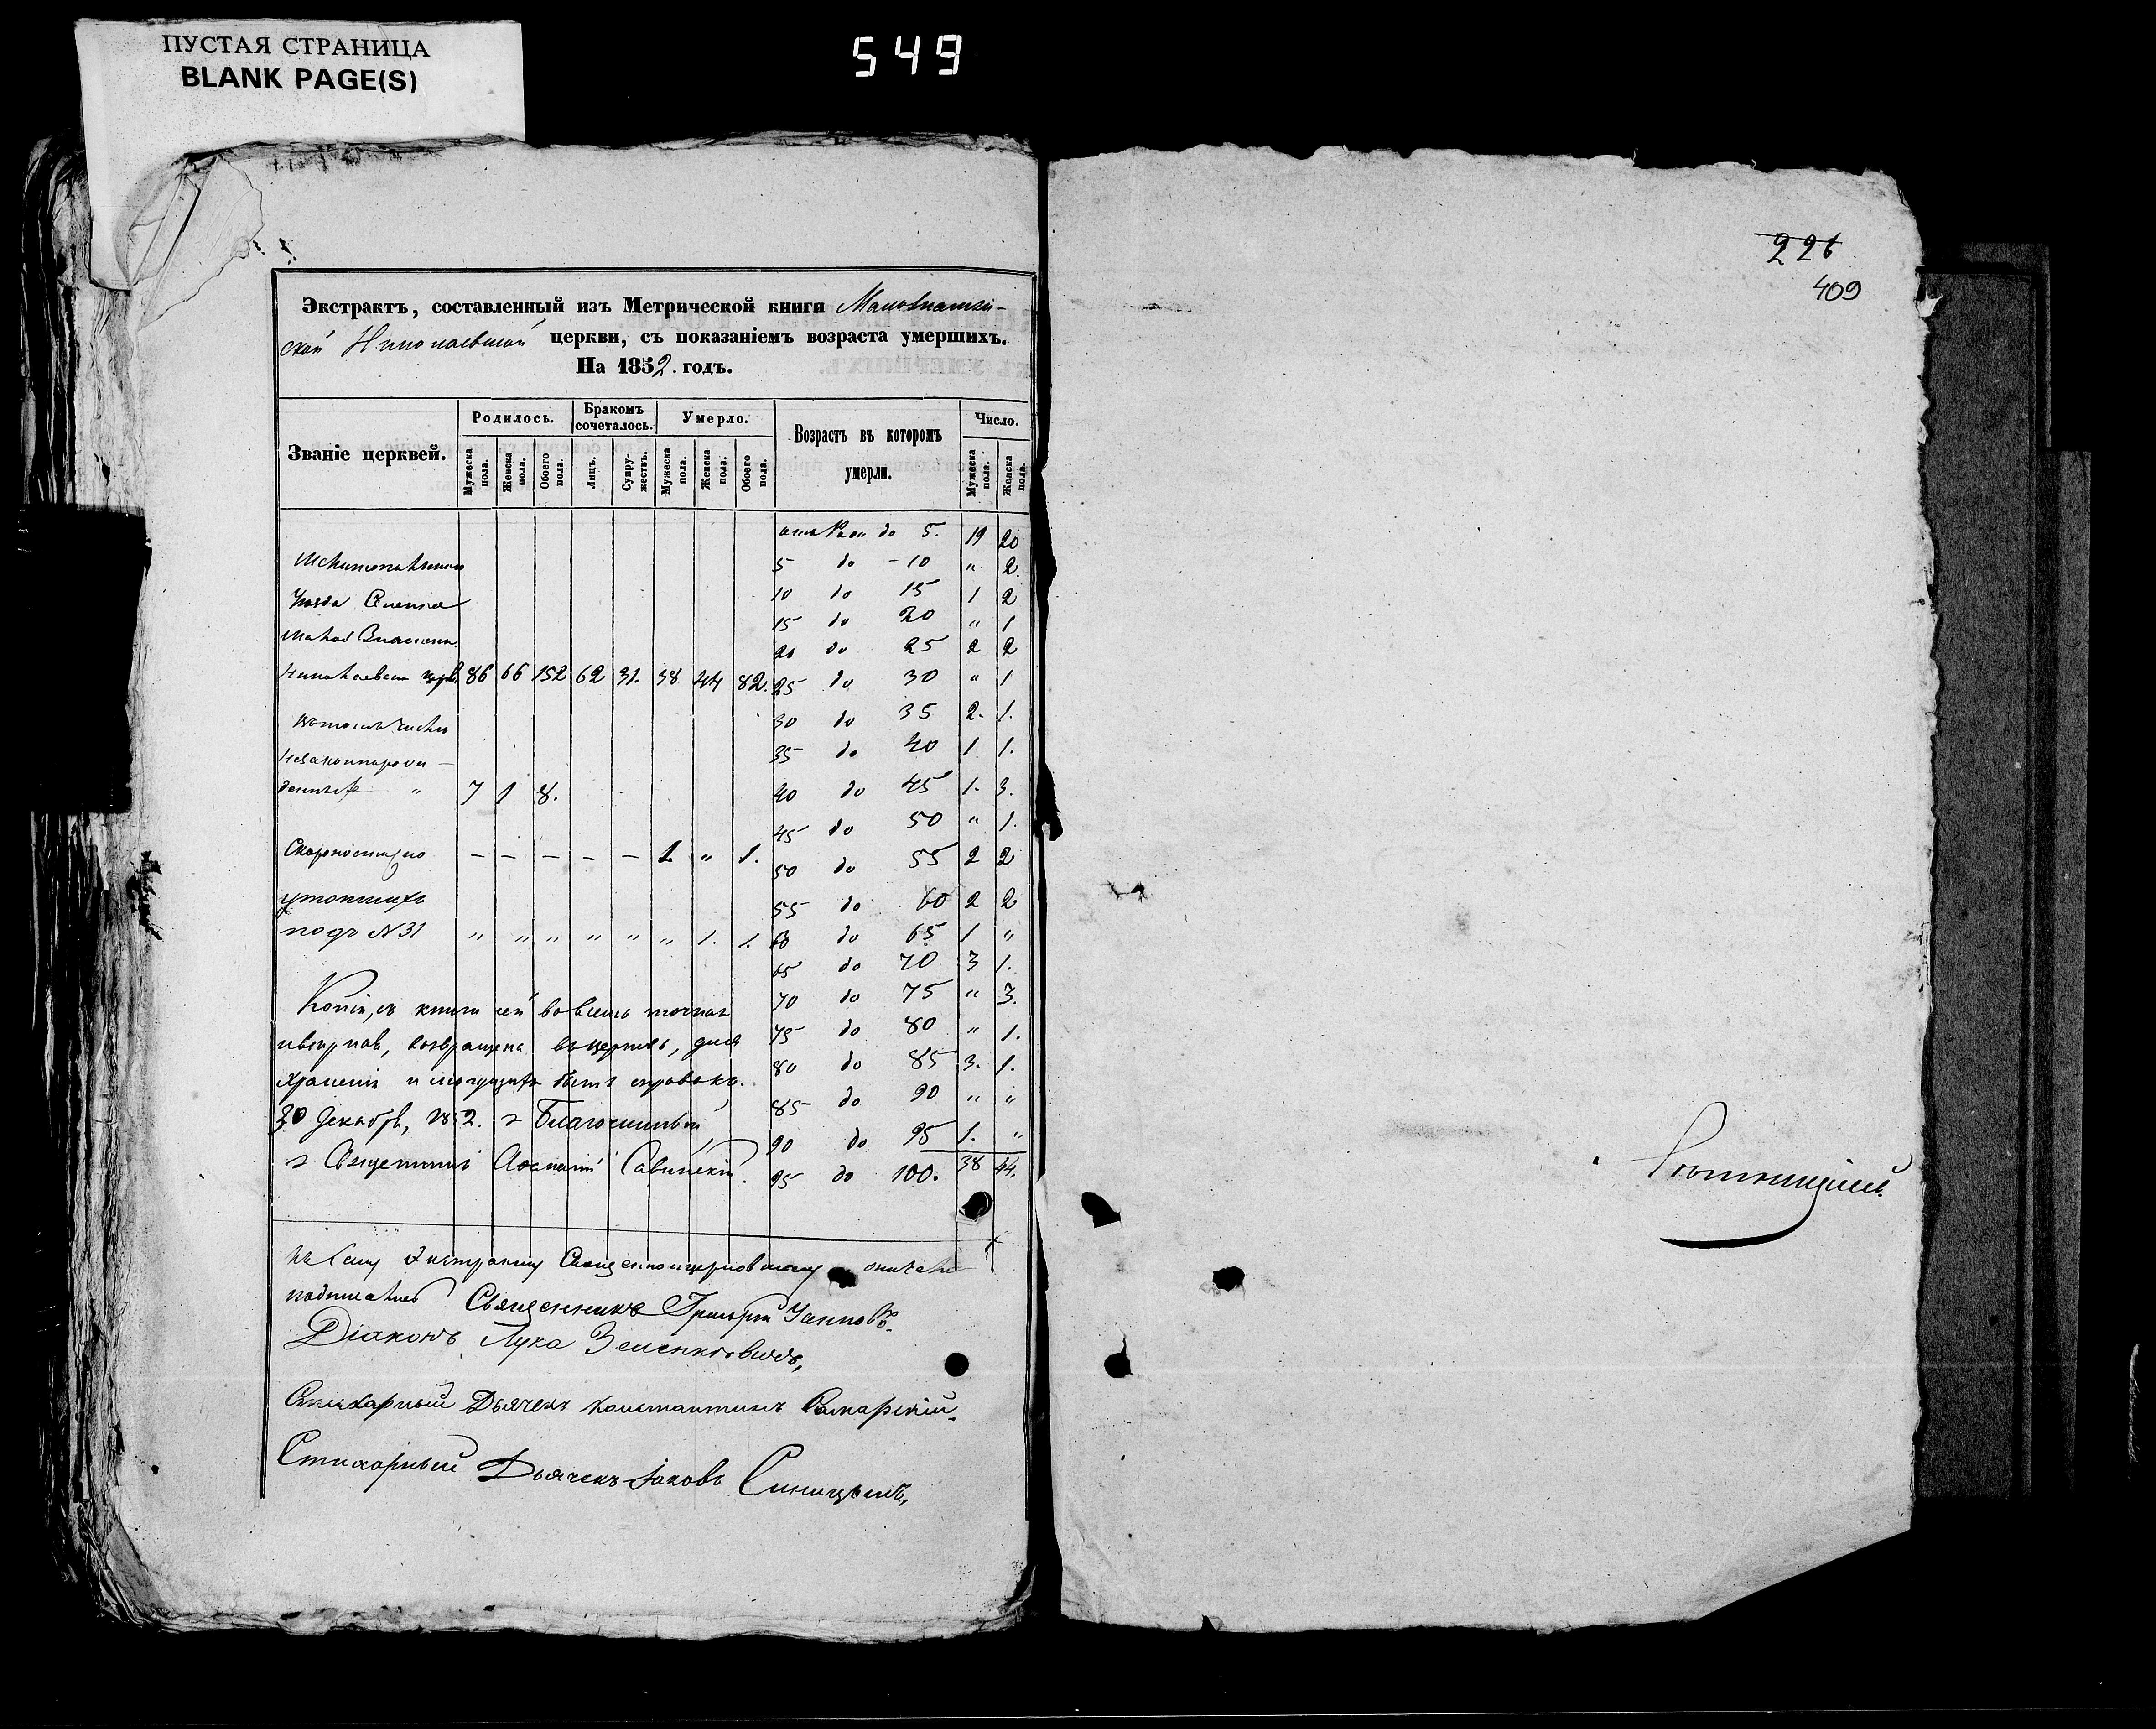 ПУСТАЯ СТРАНИЦА
BLANK PAGE(S)
549
226
409
Экстрактъ, составленный изъ Метрической книги
ской Николаевской церкви, съ показаніемъ возраста умершихъ.
На 1852. годъ.
Званіе церквей.
Родилось.
Бракомъ сочеталось.
Умерло.
Возрастъ въ которомъ умерли.
Число.
Мужеска пола.
Женска пола.
Обоего пола.
Лицъ.
Супружествъ.
Мужеска пола.
Женска пола.
Обоего пола.
Мужеска пола.
Женска пола.
до 5. 19 20
5 до 10 " 2.
10 до 15 1 2
15 до 20 " 1
20 до 25 2 2
Николаевск церкв. 86 66 152 62 31. 38 44 82. 25 до 30 " 1
въ томъ числѣ 30 до 35 2. 1.
незаконнорож 35 до 40 1 1.
денныхъ " 7 1 8. 40 до 45 1. 3.
45 до 50 " 1.
Скоропостижно — — — — — 1. " 1.
50 до 55 2 2
утопшихъ 55 до 60 2 2
подъ N 31 " " " " " " 1. 1. 60 до 65 1 "
65 до 70 3 1.
70 до 75 " 3.
Копія, съ книги сей во всемъ точная
75 до 80 " 1.
и вѣрная, возвращена въ церковь, для
80 до 85 3. 1.
храненія и могущихъ быть справокъ.
85 до 90 " "
30 Декабря, 1852. г Благочинный
90 до 95 1. "
Священникъ Савинскій.
95 до 100. 38 44.
къ сему Экстракту Священноцерковнослу
подписались Священникъ Григорій
Діаконъ Лука
Стихарный Дьячекъ Константинъ Самарскій.
Стихарный Дьячекъ Іаковъ Синицынъ,